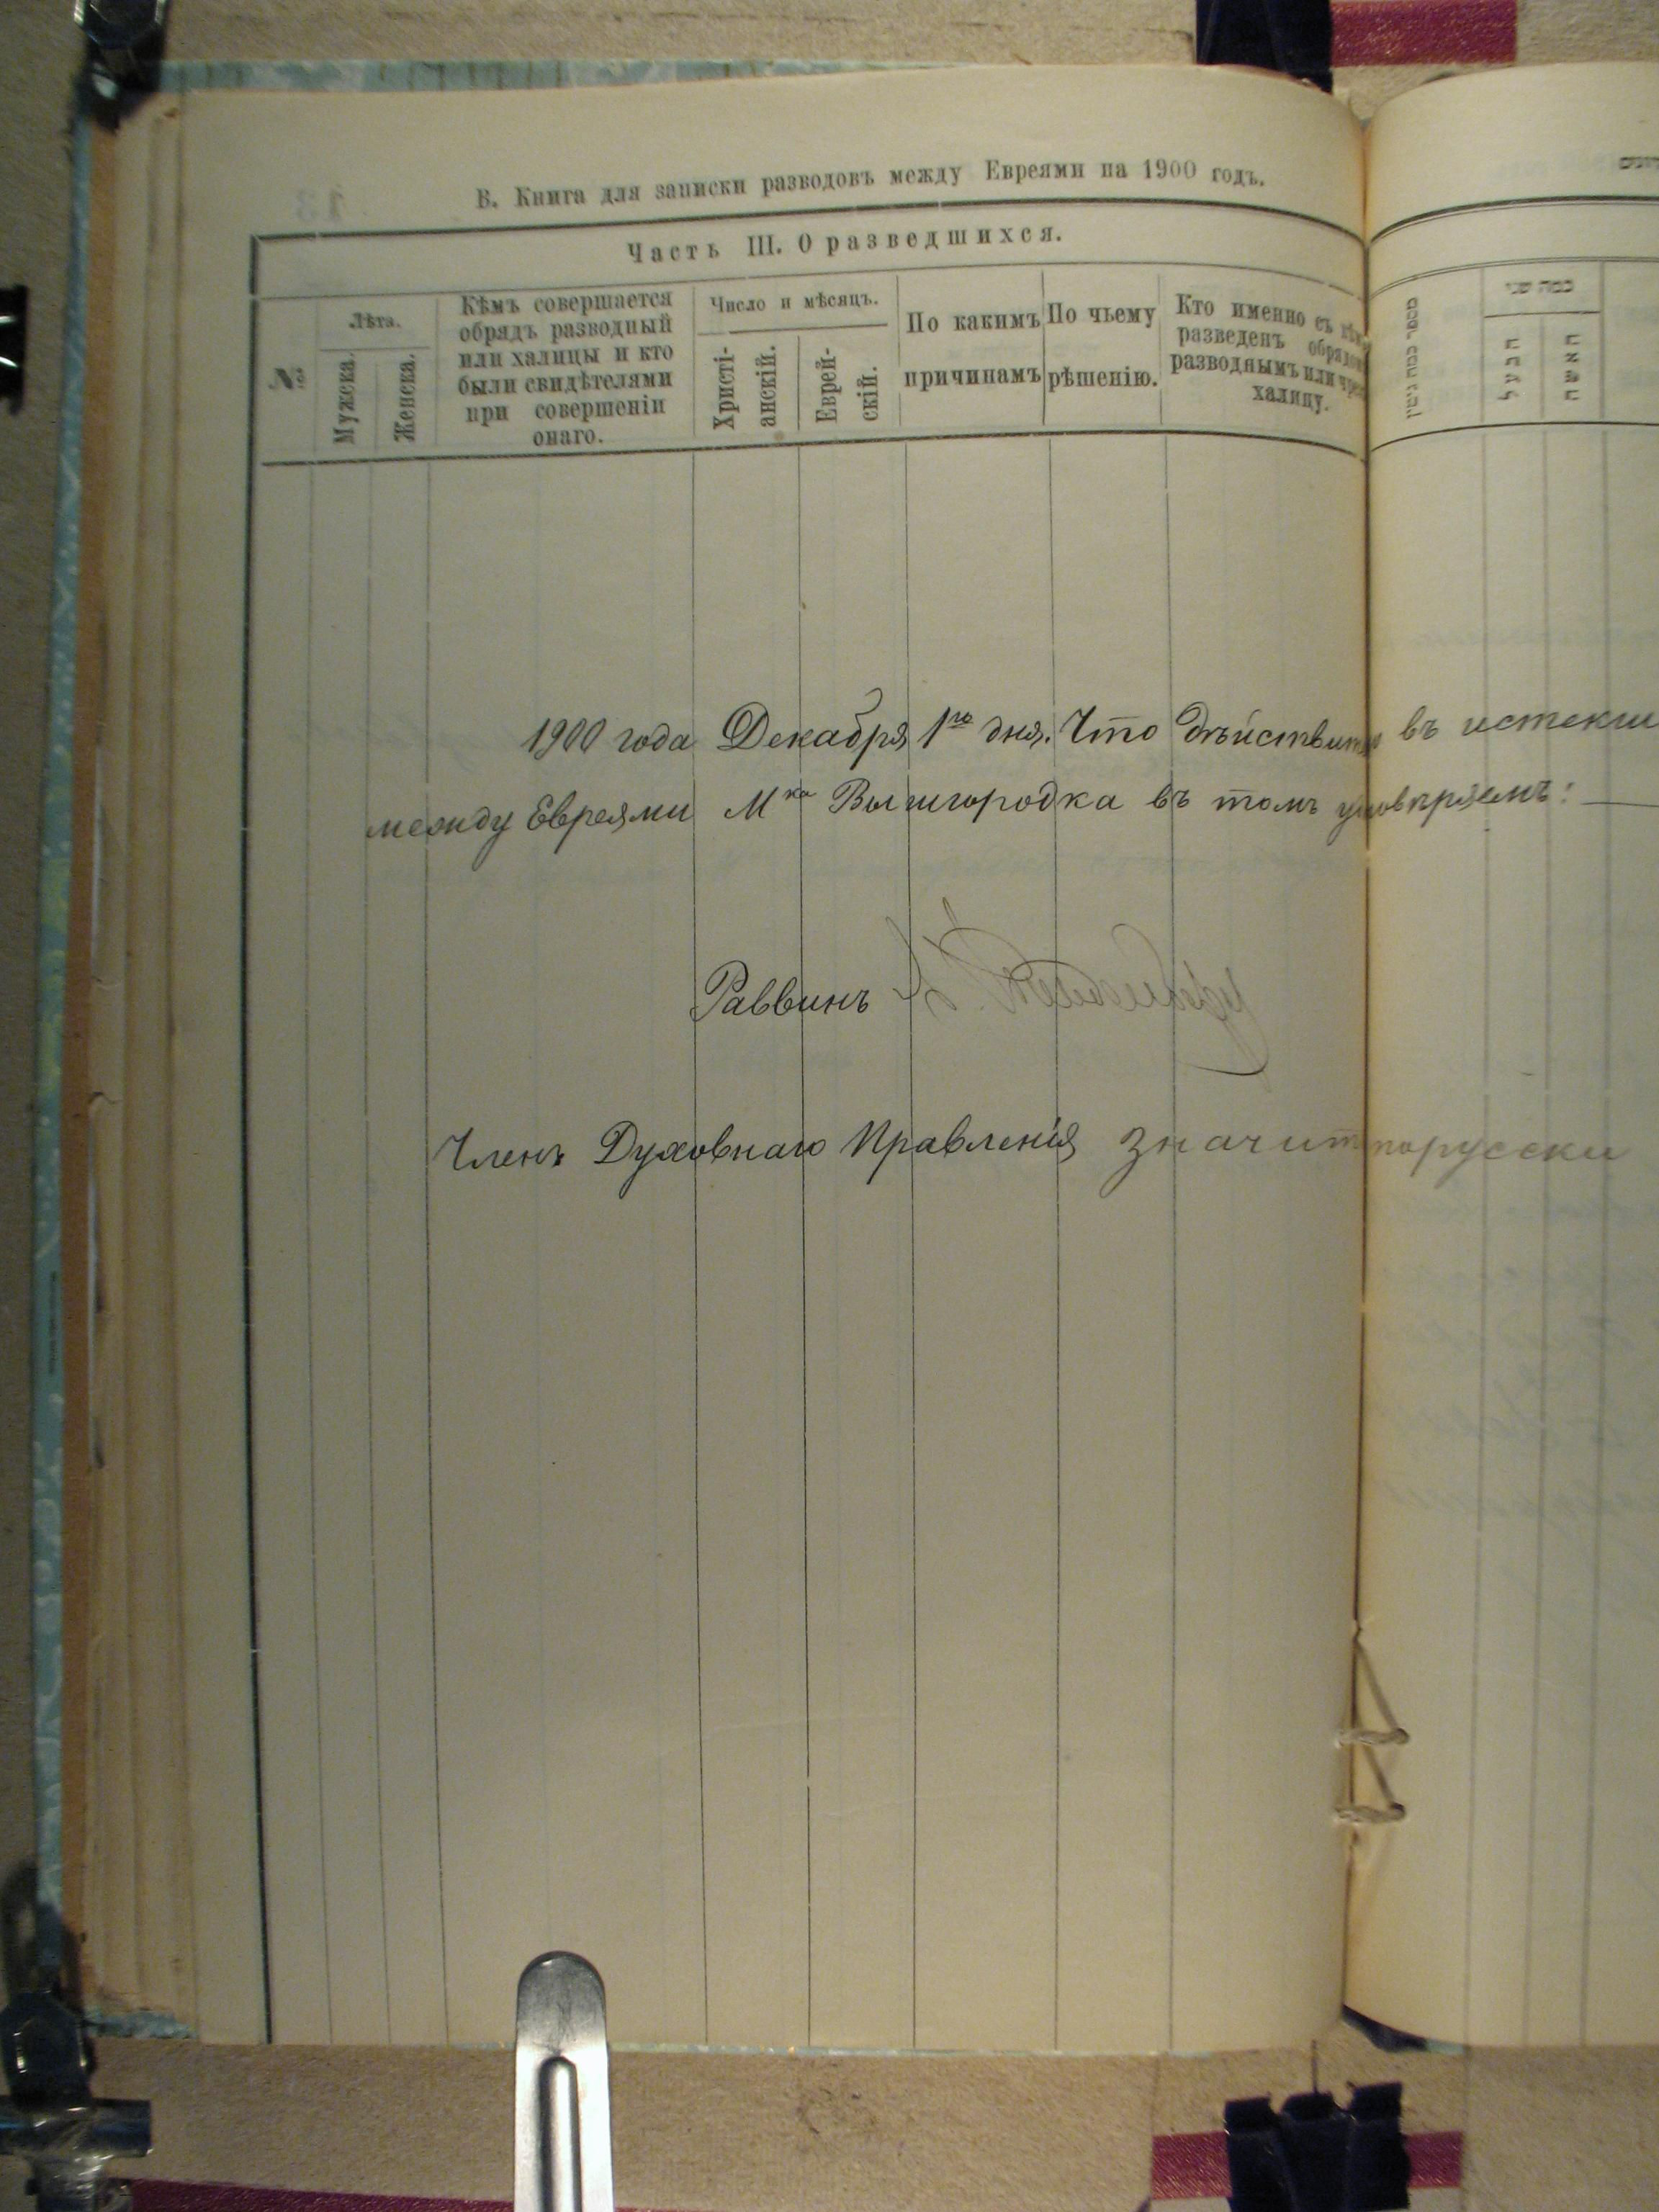 В. Книга для записки разводовъ между Евреями на 1900 годъ.
Часть III. О разведшихся.
№
Лѣта.
Мужска.
Женска.
Кѣмъ совершается
обрядъ разводный
или халицы и кто
были свидѣтелями
при совершеніи
онаго.
Число и мѣсяцъ.
Христі-
анскій.
Еврей-
скій.
По какимъ
причинамъ
По чьему
рѣшенію.
Кто именно съ
разведенъ
разводнымъ или
халицу.
כמה שני
הבעל
האשה
1900 года Декабря 1го дня. Что въ истекш
между Евреями М ка Вышгородка въ томъ удовѣряемъ:
Раввинъ
Членъ Духовнаго Правленія значит порусски